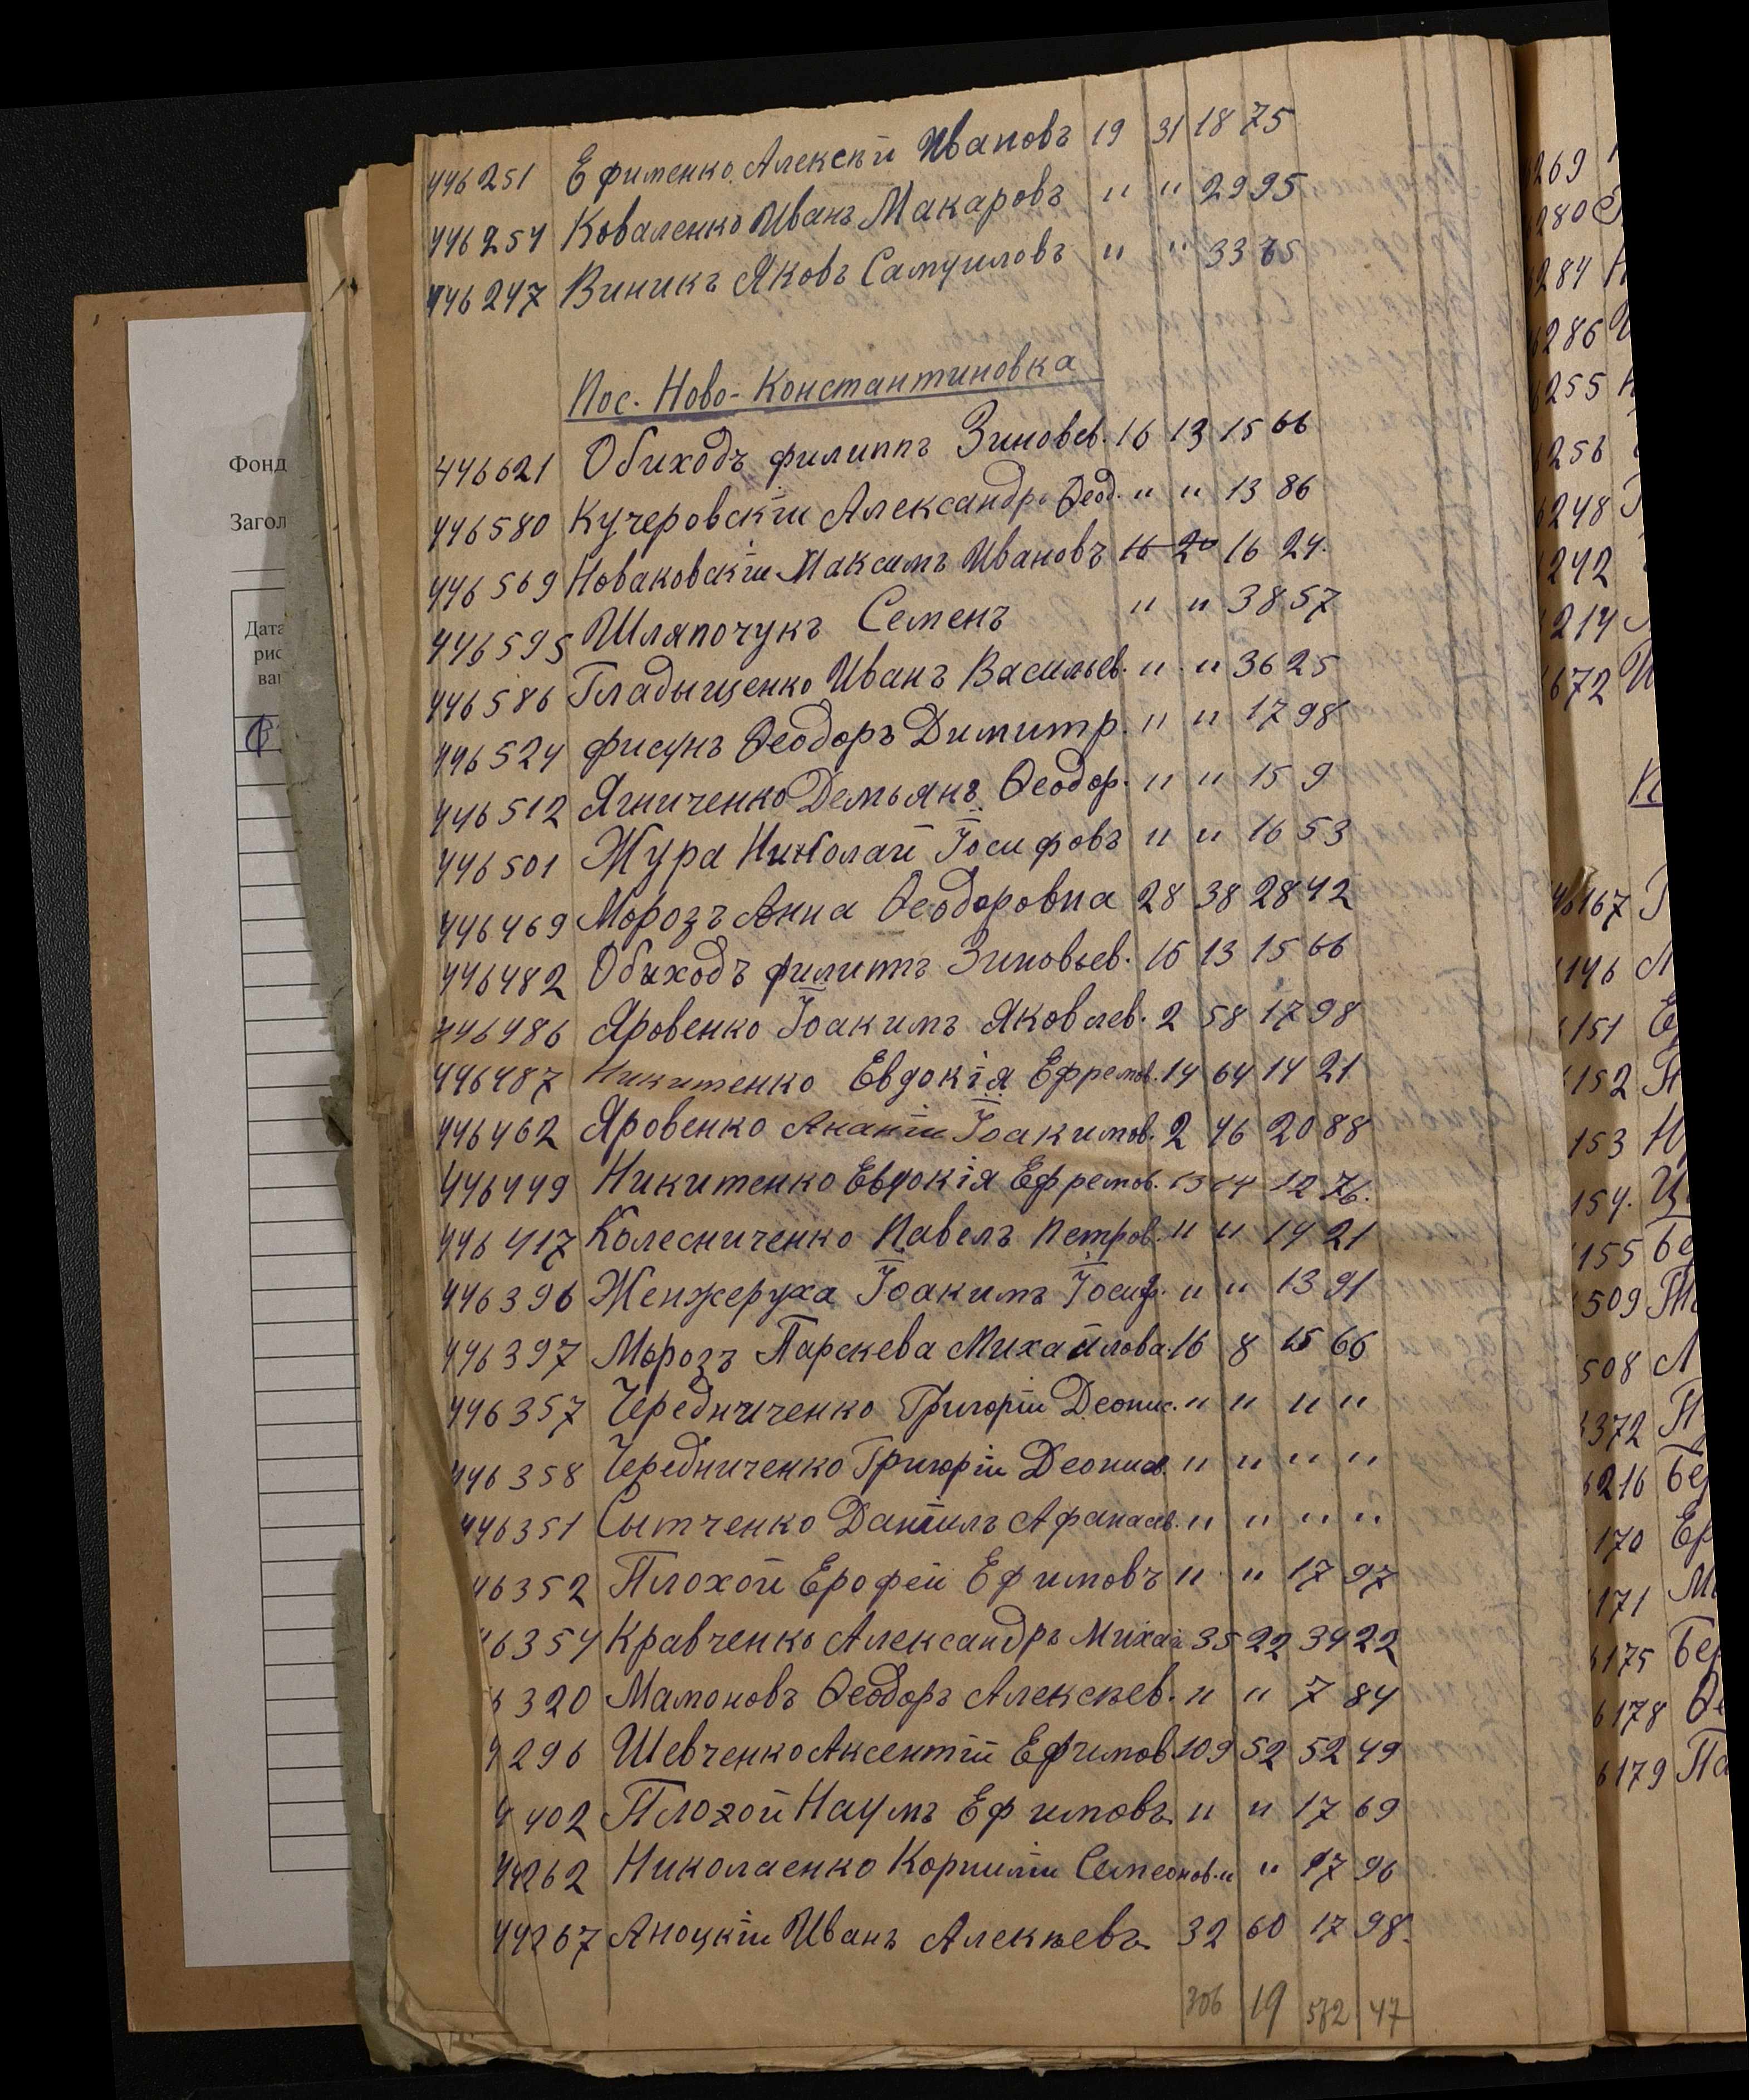 446251 Ефименко Алексѣй Ивановъ 19 31 18 75
446254 Коваленко Иванъ Макаровъ " " 29 95
446247 Виникъ Яковъ Самуиловъ " " 33 75
Пос. Ново-Константиновка
446621 Обиходъ Филиппъ Зиновев. 16 13 15 66
446580 Кучеровскій Александръ Ѳеод. " " 13 86
446569 Новаковскій Максимъ Ивановъ 16 20 16 24.
446595 Шляпочукъ Семенъ " " 38 57
446586 Гладыщенко Иванъ Васильев. " " 36 25
446524 Фисунъ Ѳеодоръ Димитр. " " 17 98
446512 Ягниченко Демьянъ Ѳеодор. " " 15 9
446501 Жура Николай Іосифовъ " " 16 53
446469 Морозъ Анна Ѳеодоровна 28 38 28 42
446482 Обиходъ Филиппъ Зиновьев. 16 13 15 66
446486 Яровенко Іоакимъ Яковлев. 2 58 17 98
446487 Никитенко Евдокія Ефремов. 14 64 14 21
446462 Яровенко Ананій Іоакимов. 2 46 20 88
446449 Никитенко Евдокія Ефремов. 15 14 12 76.
446417 Колесниченко Павелъ Петров. " " 14 21
446396 Женжеруха Іоакимъ Іосиф. " " 13 91
446397 Морозъ Парскева Михайлова 16 8 15 66
446357 Чередниченко Григорій Деонис. " " " "
446358 Чередниченко Григорій Деонисов. " " " "
446351 Сытченко Даніилъ Афанасьев. " " " "
46352 Плохой Ерофей Ефимовъ " " 17 97
46354 Кравченко Александръ Михай 35 22 34 22
320 Мамоновъ Ѳеодоръ Алексѣев. " " 7 84
4296 Шевченко Аксентій Ефимов 109 52 52 49
4402 Плохой Наумъ Ефимовъ " " 17 69
44262 Николаенко Корнилій Семеонов. " " 17 96
44267 Аноцкій Иванъ Алекѣевъ 32 60 17 98.
306 19 582 47
Фонд
Загол
Дата
рис
ват
269
280
284
286
255
256
248
242
214
672
46167
146
151
152
153
154.
155 Бе
509
508
372
216 Бе
170 Ер
171
175 Бе
178
179 Па